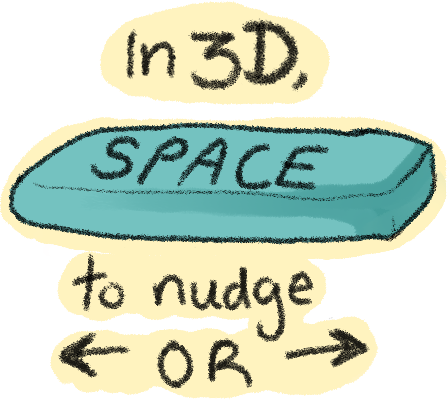 In 3D,
SPACE
to nudge
← OR →